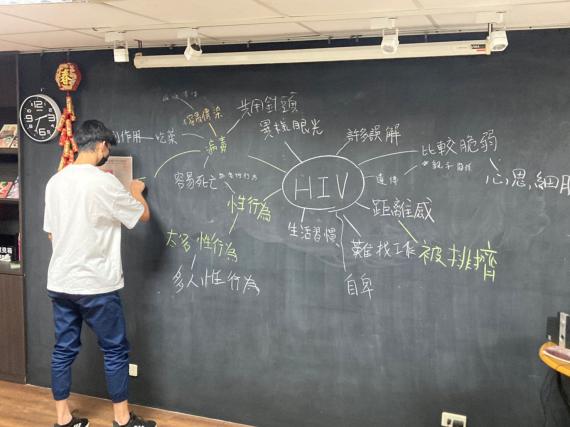 春
共用針頭
容易傳染
異樣眼光
許多誤解
作用
吃藥
病毒
比較脆弱
容易死亡
HIV
心思,細
性行為
距離感
生活習慣
太多性行為
難找工作
被排擠
多人性行為
自卑